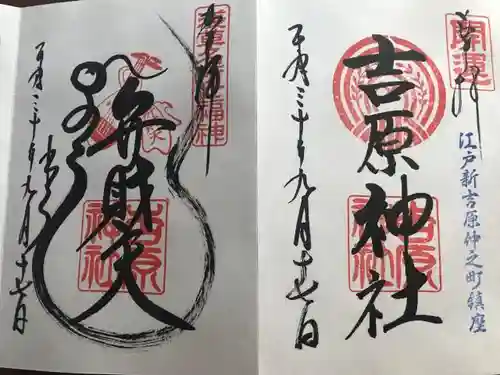 開運
奉拝
吉原神社
吉原
神社
平成三十年九月十七日
江戸新吉原仲之町鎮座
奉拝
弁財天
吉原
神社
平成三十年九月十七日